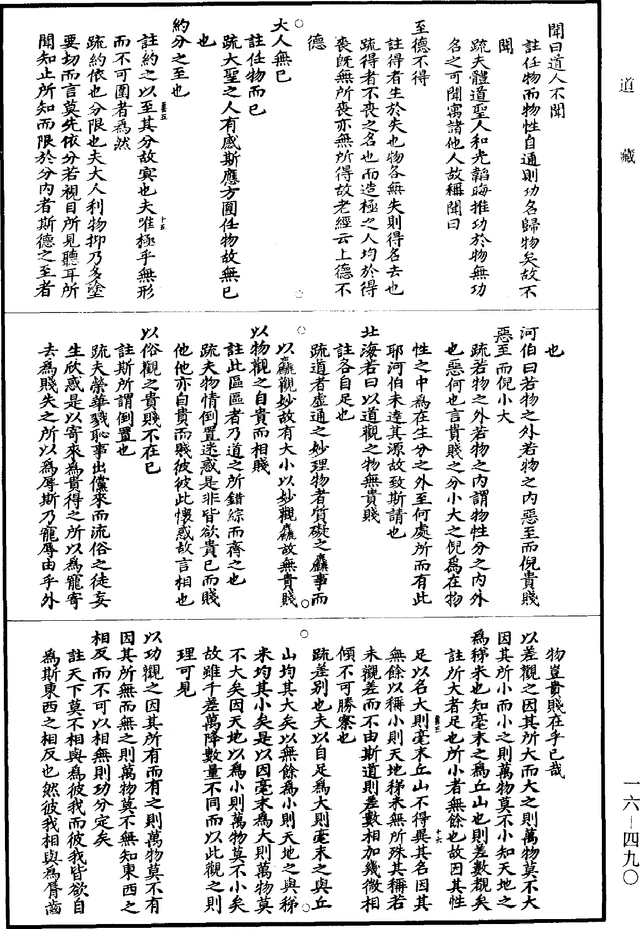 道藏
聞曰道人不聞
註任物而物性自通則功名歸物矣故不
聞
疏夫體道聖人和光韜晦推功於物無功
名之可聞寓諸他人故稱聞曰
至德不得
註得者生於失也物各無失則得名去也
疏得者不喪之名也而造極之人均於得
喪既無所喪亦無所得故老經云上德不
德
大人無已
註任物而已
疏大聖之人有感斯應方圓任物故無已
也
約分之至也
註約之以至其分故冥也夫唯極乎無形
而不可圍者為然
疏約依也分限也夫大人利物抑乃多塗
要切而言莫先依分若視目所見聽耳所
聞知止所知而限於分內者斯德之至者
也
河伯曰若物之外若物之內惡至而倪貴賤
惡至而倪小大
疏若物之外若物之內謂物性分之內外
也惡何也言貴賤之分小大之倪為在物
性之中為在生分之外至何處所而有此
耶河伯未達其源故致斯請也
北海若曰以道觀之物無貴賤
註各自足也
疏道者虛通之妙理物者質礙之麤事而
以麤觀妙故有大小以妙觀麤故無貴賤
以物觀之自貴而相賤
註此區區者乃道之所錯綜而齊之也
疏夫物情倒置迷惑是非皆欲貴已而賤
他他亦自貴而賤彼彼此懷惑故言相也
以俗觀之貴賤不在已
註斯所謂倒置也
疏夫榮華戮恥事出儻來而流俗之徒妄
生欣惑是以寄來為貴得之所以為寵寄
去為賤失之所以為辱斯乃寵辱由乎外
物豈貴賤在乎已哉
以差觀之因其所大而大之則萬物莫不大
因其所小而小之則萬物莫不小知天地之
為稊米也知毫末之為丘山也則差數覩矣
註所大者足也所小者無餘也故因其性
足以名大則毫末丘山不得異其名因其
無餘以稱小則天地稊米無所殊其稱若
夫觀差而不由斯道則差數相加幾微相
傾不可勝察也
疏差別也夫以自足為大則毫末之與丘
山均其大矣以無餘為小則天地之與稊
米均其小矣是以因毫末為大則萬物莫
不大矣因天地以為小則萬物莫不小矣
故雖千差萬降數量不同而以此觀之則
理可見
以功觀之因其所有而有之則萬物莫不有
因其所無而無之則萬物莫不無知東西之
相反而不可以相無則功分定矣
註天下莫不相與為彼我而彼我皆欲自
為斯東西之相反也然彼我相與為脣齒
一六—四九〇